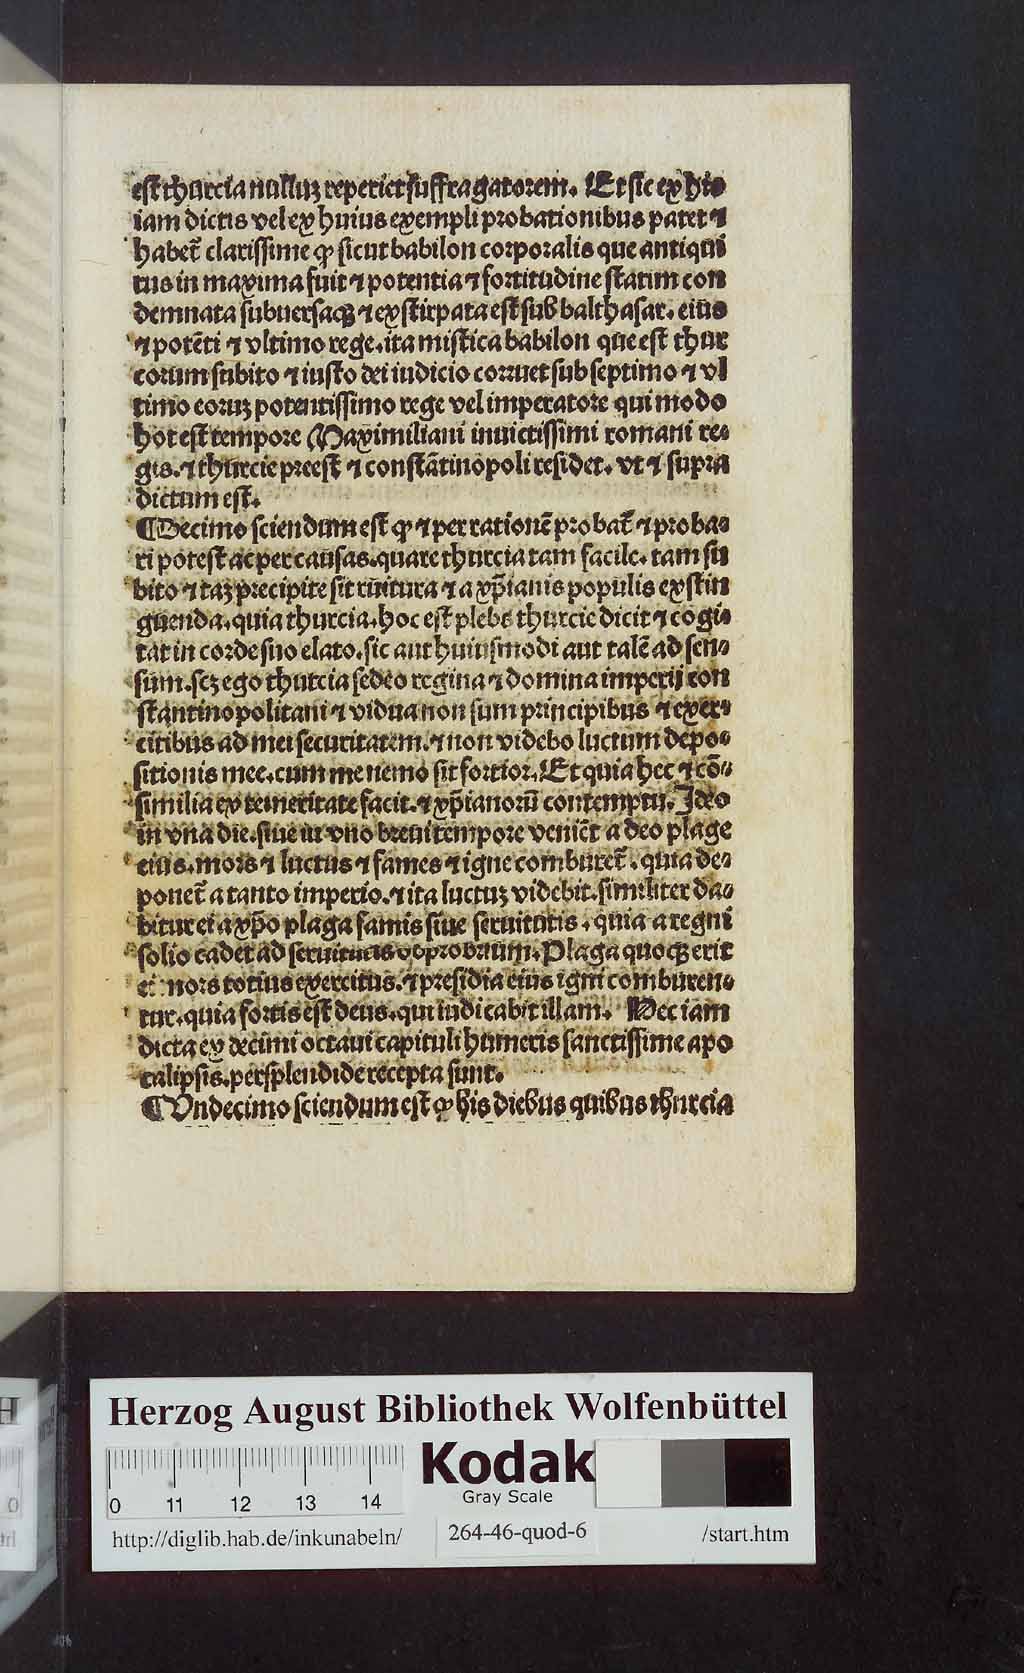 est thurcia nulluꝫ reperiet suffragatorem. Et sic ex his
iam dictis vel ex huius exempli probationibus patet ⁊
habet̄ clarissime ꝙ sicut babilon corporalis que antiqui
tus in maxima fuit ⁊ potentia ⁊ fortitudine statim con
demnata subuersaqꝫ ⁊ exstirpata est sub balthasar. eiūs
⁊ potēti ⁊ vltimo rege. ita mistica babilon que est thur
corum subito ⁊ iusto dei iudicio corruet sub septimo ⁊ vl
timo eoruꝫ potentissimo rege vel imperatore qui modo
hoc est tempore Maximiliani inuictissimi romani re-
gis. ⁊ thurcie preest ⁊ constātinopoli residet. vt ⁊ supra
dictum est.
¶Decimo sciendum est ꝙ ⁊ per rationē probat̄ ⁊ proba-
ri potest ac per causas. quare thurcia tam facile. tam su
bito ⁊ taꝫ precipite sit ruitura ⁊ a xp̄ianis populis exstin
guenda. quia thurcia. hoc est plebs thurcie dicit ⁊ cogi-
tat in corde suo elato. sic aut huiusmodi aut talē ad sen-
sum. scꝫ ego thurcia sedeo regina ⁊ domina imperij con
stantinopolitani ⁊ vidua non sum principibus ⁊ exer-
citibus ad mei securitatem. ⁊ non videbo luctum depo-
sitionis mee. cum me nemo sit fortior. Et quia hec ⁊ cō-
similia ex temeritate facit. ⁊ xp̄ianorū contemptu. Ideo
in vna die. siue in vno breui tempore veniēt a deo plage
eius. mors ⁊ luctus ⁊ fames ⁊ igne comburet̄. quia de-
ponet̄ a tanto imperio. ⁊ ita luctuꝫ videbit. similiter da-
bitur ei a xp̄o plaga famis siue seruitutis. quia a regni
solio cadet ad seruitutis opprobrium. Plaga quoqꝫ erit
ei mors totius exercitus. ⁊ presidia eius igni comburen-
tur. quia fortis est deus. qui iudicabit illam. Hec iam
dicta ex decimi octaui capituli humeris sanctissime apo
calipsis. persplendide recepta sunt.
¶Vndecimo sciendum est ꝙ his diebus quibus thurcia
Herzog August Bibliothek Wolfenbüttel
Kodak
Gray Scale
0 11 12 13 14
http://diglib.hab.de/inkunabeln/ 264-46-quod-6 /start.htm